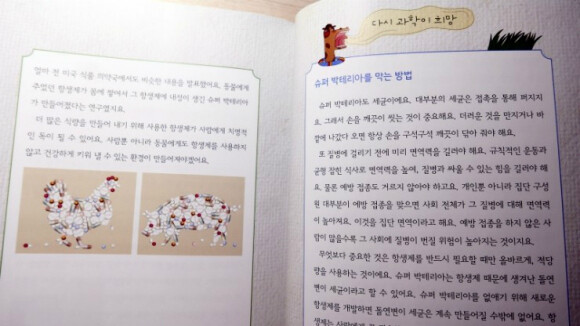 얼마 전 미국 식품 의약국에서도 비슷한 내용을 발표했어요. 동물에게
주었던 항생제가 몸에 쌓여서 그 항생제에 내성이 생긴 슈퍼 박테리아
가 만들어졌다는 연구였지요.
더 많은 식량을 만들어 내기 위해 사용한 항생제가 사람에게 치명적
인 독이 될 수 있어요. 사람뿐 아니라 동물에게도 항생제를 사용하지
않고 건강하게 키워 낼 수 있는 환경이 만들어져야겠어요.
다시 과학이 희망
슈퍼 박테리아를 막는 방법
슈퍼 박테리아도 세균이에요. 대부분의 세균은 접촉을 통해 퍼지지
요. 그래서 손을 깨끗이 씻는 것이 중요해요. 더러운 것을 만지거나 바
깥에 나갔다 오면 항상 손을 구석구석 깨끗이 닦아 줘야 해요.
또 질병에 걸리기 전에 미리 면역력을 길러야 해요. 규칙적인 운동과
균형 잡힌 식사로 면역력을 높여, 질병과 싸울 수 있는 힘을 길러야 해
요. 물론 예방 접종도 거르지 않아야 하고요. 개인뿐 아니라 집단 구성
원 대부분이 예방 접종을 맞으면 사회 전체가 그 질병에 대해 면역력
이 높아져요. 이것을 집단 면역이라고 해요. 예방 접종을 하지 않은 사
람이 많을수록 그 사회에 질병이 번질 위험이 높아지는 것이지요.
무엇보다 중요한 것은 항생제를 반드시 필요할 때만 올바르게, 적당
량을 사용하는 것이에요. 슈퍼 박테리아는 항생제 때문에 생겨난 돌연
변이 세균이라고 할 수 있어요. 슈퍼 박테리아를 없애기 위해 새로운
항생제를 개발하면 돌연변이 세균은 계속 만들어질 수밖에 없어요. 항
생제는 사람에게